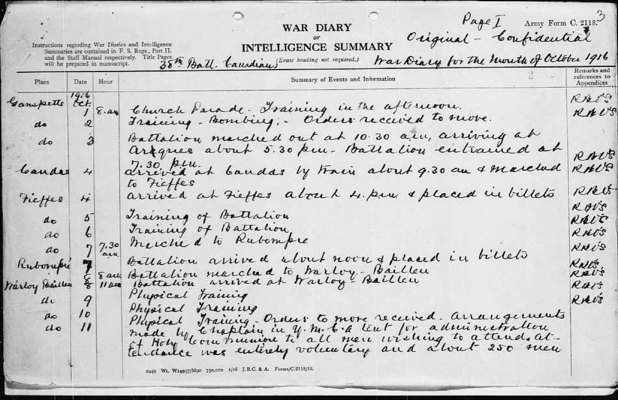 Page I Army Form C. 2118. 3
WAR DIARY
or
INTELLIGENCE SUMMARY
(Erase heading not required.)
Original - Confidential
Instructions regarding War Diaries and Intelligence
Summaries are contained in F. S. Regs., Part II.
and the Staff Manual respectively. Title Pages
will be prepared in manuscript.
38th Batt. Canadians War Diary for the Month of October 1916
Place Date Hour Summary of Events and Information Remarks and references to Appendices
1916
Ganspette Oct. 1 8 am Church Parade - Training in the afternoon. R.H.V.S
do 2 Training - Bombing, - Orders received to move. R.H.V.S
do 3 Battalion marched out at 10.30 a.m, arriving at
Arques about 5.30 pm - Battalion entrained at
7.30 pm. R.H.V.S
Candas 4 arrived at Candas by train about 9.30 am & marched R.H.V.S
to Fieffes
Fieffes 4 arrived at Fieffes about 4 pm & placed in billets R.H.V.S
do 5 Training of Battalion R.H.V.S
do 6 Training of Battalion R.H.V.S
do 7 7.30 am Marched to Rubempre R.H.V.S
Rubempré 7 Battalion arrived about noon & placed in billets R.H.V.S
8 8 am Battalion marched to Warloy-Baillen R.H.V.S
Warloy Baillen 8 11 am Battalion arrived at Warloy-Baillen R.H.V.S
do 9 Physical Training R.H.V.S
do 10 Physical Training
do 11 Physical Training - Orders to move received. Arrangements
made by Chaplain in Y.M.C.A tent for administration
of Holy Communion to all men wishing to attend. At-
tendance was entirely voluntary and about 250 men
2449 Wt. W14957/M90 750,000 1/16 J.B.C. & A. Forms/C.2118/12.